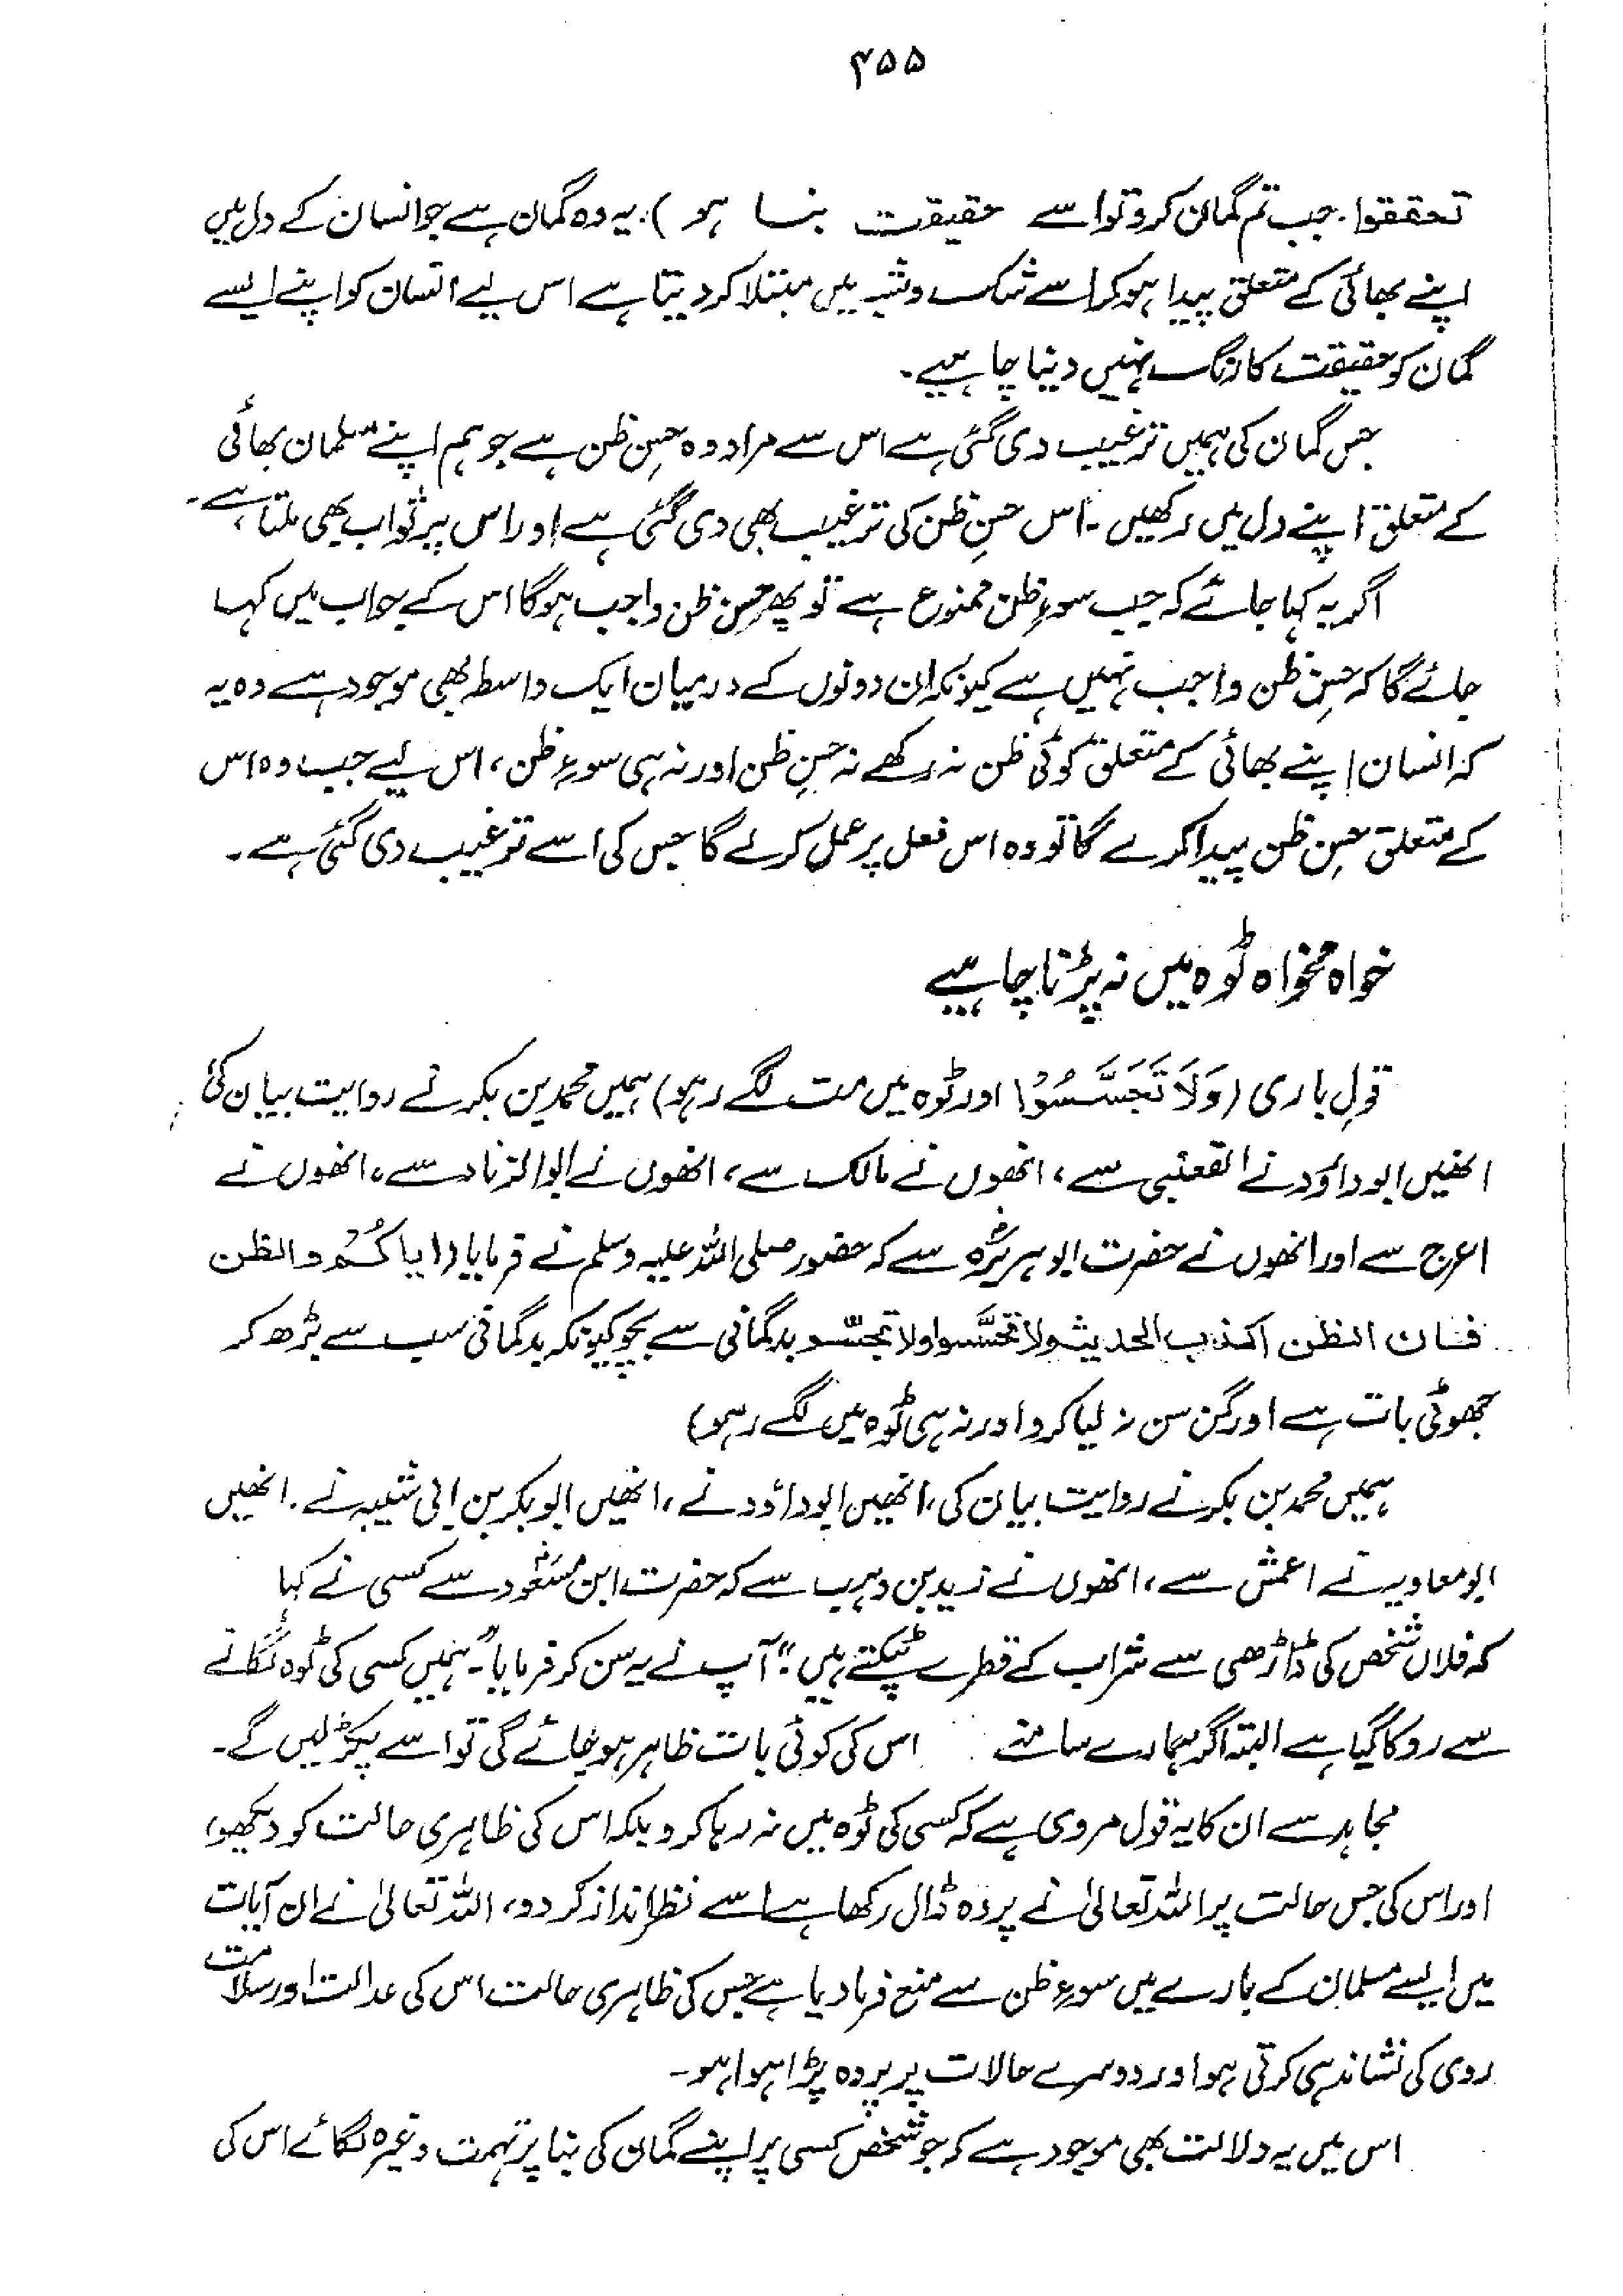 ۴۵۵
تحققوا. جب تم گمان کرو تو اسے حقیقت بنسا ہو). یہ وہ گمان ہے جو انسان کے دل میں
اپنے بھائی کے متعلق پیدا ہو کر اسے شک و شبہ میں مبتلا کر دیتا ہے اس لیے انسان کو اپنے ایسے
گمان کو حقیقت کا رنگ نہیں دینا چاہیے۔
جس گمان کی ہمیں ترغیب دی گئی ہے اس سے مراد وہ حسنِ ظن ہے جو ہم اپنے مسلمان بھائی
کے متعلق اپنے دل میں رکھیں۔ اس حسنِ ظن کی ترغیب بھی دی گئی ہے اور اس پر ثواب بھی ملتا ہے۔
اگر یہ کہا جائے کہ جب سوءِ ظن ممنوع ہے تو پھر حسن ظن واجب ہوگا اس کے جواب میں کہا
جائے گا کہ حسنِ ظن واجب نہیں ہے کیونکہ ان دونوں کے درمیان ایک واسطہ بھی موجود ہے وہ یہ
کہ انسان اپنے بھائی کے متعلق کوئی ظن نہ رکھے نہ حسنِ ظن اور نہ ہی سوءِ ظن، اس لیے جب وہ اس
کے متعلق حسنِ ظن پیدا کرے گا تو وہ اس فعل پر عمل کرلے گا جس کی اسے ترغیب دی گئی ہے۔
خواہ مخواہ ٹوہ میں نہ پڑنا چاہیے
قولِ باری (وَلَا تَجَسَّسُوْا اور ٹوہ میں مت لگے رہو) ہمیں محمد بن بکر نے روایت بیان کی
انھیں ابو داؤد نے القعنبی سے، انھوں نے مالک سے، انھوں نے ابوالزناد سے، انھوں نے
اعرج سے اور انھوں نے حضرت ابو ہریرہؓ سے کہ حضور صلی اللہ علیہ وسلم نے فرمایا (ایاکُمْ والظن
فان الظن اکذب الحدیث ولا تحسَّسوا ولا تجسّسو بدگمانی سے بچو کیونکہ بدگمانی سب سے بڑھ کر
جھوٹی بات ہے اور گن سن نہ لیا کرو اور نہ ہی ٹوہ میں لگے رہو)
ہمیں محمد بن بکر نے روایت بیان کی، انھیں ابو داؤد نے، انھیں ابوبکر بن ابی شیبہ نے. انھیں
ابو معاویہ نے اعمش سے، انھوں نے زید بن وہب سے کہ حضرت ابن مسعودؓ سے کسی نے کہا
کہ فلاں شخص کی ڈاڑھی سے شراب کے قطرے ٹپکتے ہیں۔" آپ نے یہ سن کر فرمایا"۔ ہمیں کسی کی ٹوہ لگانے
سے روکا گیا ہے البتہ اگر ہمارے سامنے اس کی کوئی بات ظاہر ہو جائے گی تو اسے پکڑ لیں گے۔
مجاہد سے ان کا یہ قول مروی ہے کہ کسی کی ٹوہ میں نہ رہا کرو بلکہ اس کی ظاہری حالت کو دیکھو،
اور اس کی جس حالت پر اللہ تعالیٰ نے پردہ ڈال رکھا ہے اسے نظر انداز کر دو، اللہ تعالیٰ نے ان آیات
میں ایسے مسلمان کے بارے میں سوءِ ظن سے منع فرما دیا ہے جس کی ظاہری حالت اس کی عدالت اور سلامت
روی کی نشاندہی کرتی ہو اور دوسرے حالات پر پردہ پڑا ہوا ہو۔
اس میں یہ دلالت بھی موجود ہے کہ جو شخص کسی پر اپنے گمان کی بنا پر تہمت وغیرہ لگائے اس کی